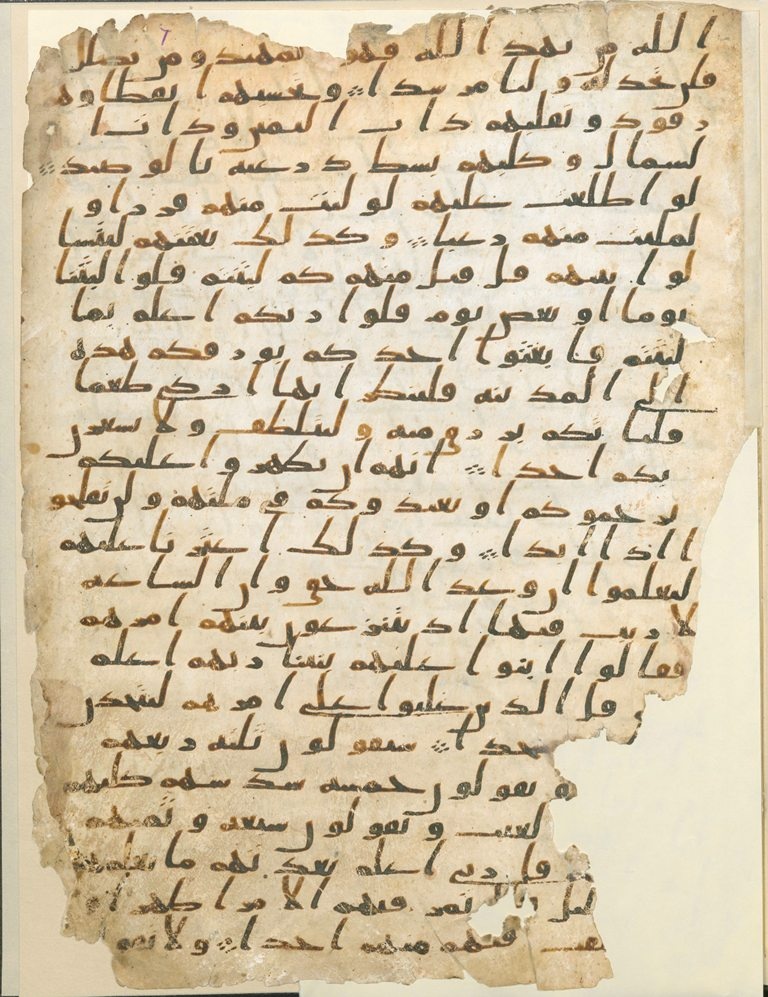 الله من يهد الله فهو المهتد ومن يضلل
فلن تجد له وليا مرشدا وتحسبهم ايقظا وهم
رقود ونقلبهم ذات اليمين وذات ا
لشمال وكلبهم بسط ذرعيه بالوصيد
لو اطلعت عليهم لوليت منهم فررا و
لملئت منهم رعبا وكذلك بعثنهم ليتسا
لوا بينهم قل قيل منهم كم لبثتم قلوا لبثنا
يوما او بعض يوم قلوا ربكم اعلم بما
لبثتم فابعثوا احدكم بورقكم هذه
الى المدينه فلينظر ايها ازكى طعما
فلياتكم برزق منه وليتلطف ولا يشعرن
بكم احدا انهم ان يظهروا عليكم
يرجموكم او يعيدوكم في ملتهم ولن تفلحو
ا اذا ابدا وكذلك اعثرنا عليهم
ليعلموا ان وعد الله حق وان الساعه
لا ريب فيها اذ يتنزعون بينهم امرهم
فقالوا ابنوا عليهم بنينا ربهم اعلم
قل الذين غلبوا على امرهم لنتخذن
جدا سيقولون ثلثه ربعهم
ويقولون خمسه سدسهم كلبهم
لغيب ويقولون سبعه وثمنهم
قل ربي اعلم بعدتهم ما يعلمهم
تمر فيهم الا مرا ظهرا
فيهم منهم احدا ولا تقو